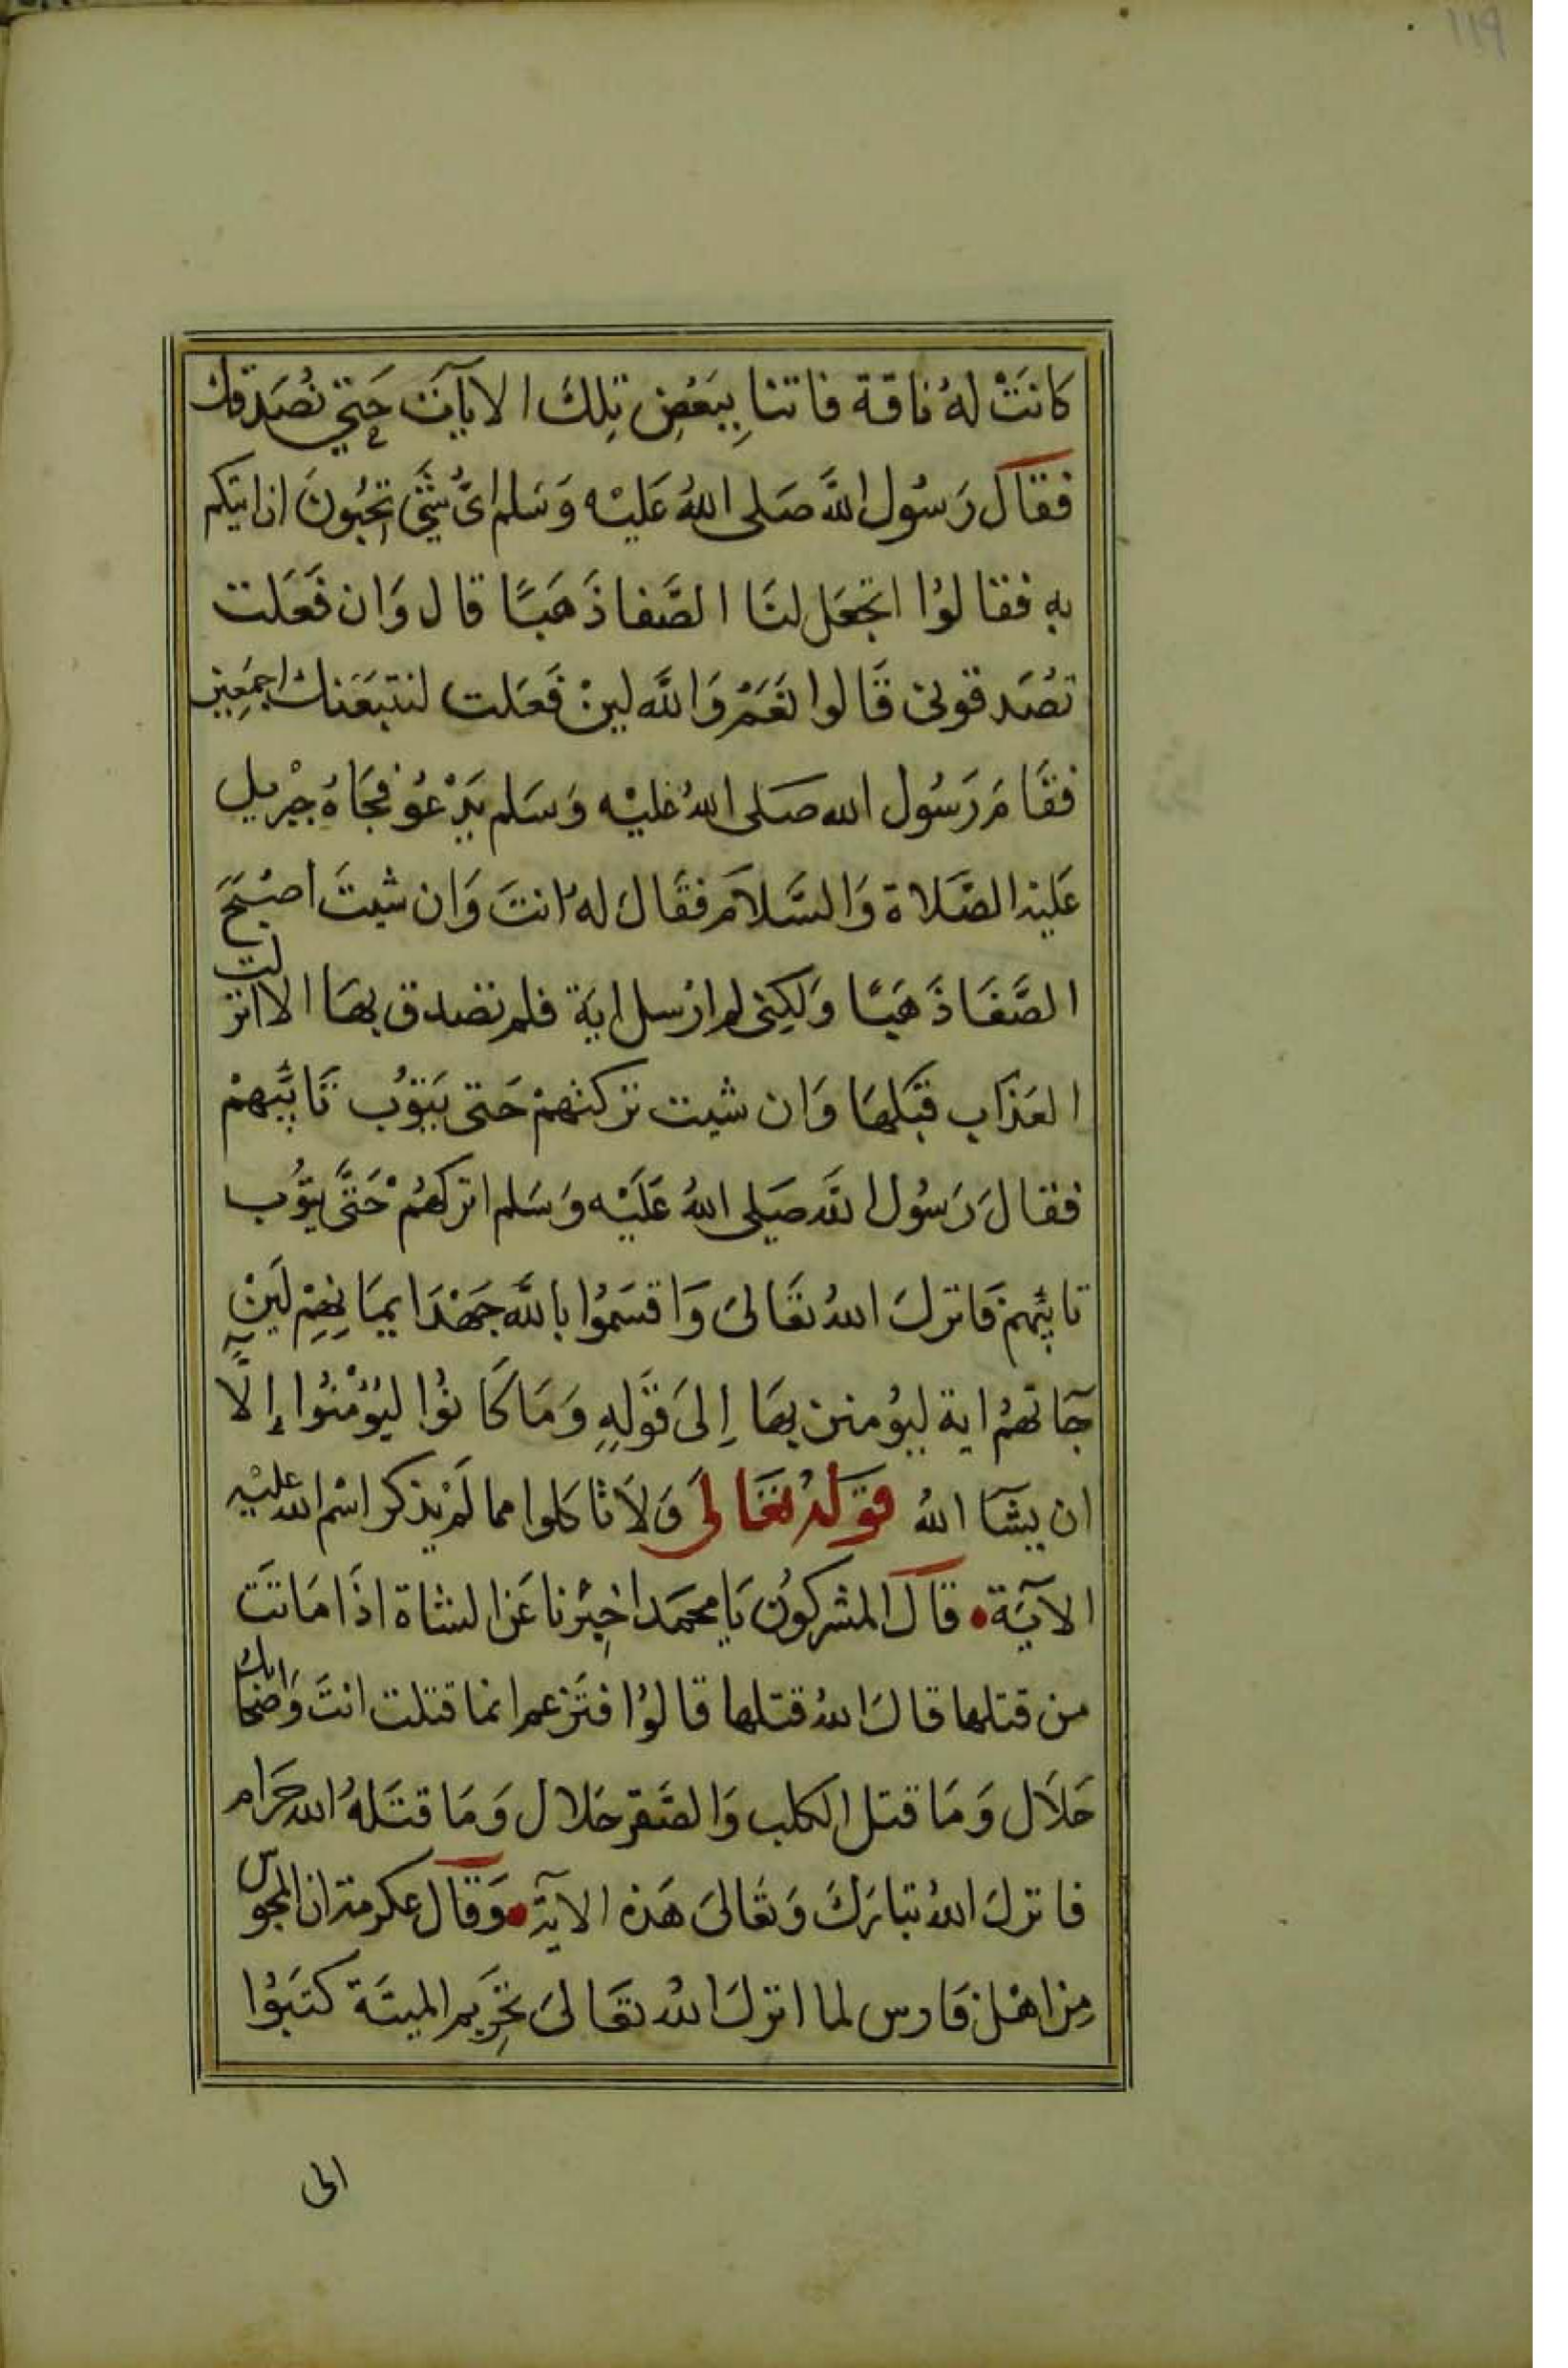 119
كانَتْ لهُ ناقة فاتنا بِبَعْضِ تِلكَ الايآت حَتي نُصَدقك
فقالَ رَسُول اللَّه صَلى اللهُ عَليْه وَسَلم ايُّ شَيْ تحُبُونَ ان اتيكم
بهِ فقالوُا اتجعَل لنَا الصَّفا ذَهَبًا قال وَان فَعَلت
تصَدقونى قَالوا نَعَمْ وَاللَّه لينْ فَعَلت لنتبَعَنك اجمَعِين
فقَامَ رَسُول الله صَلى اللهُ عليْه وَسَلم يَدْعُو فجَاهُ جبْريل
عَليْه الصَّلاة وَالسَّلاَم فقَالَ له انتَ وَان شيتَ اصْبَحَ
الصَّفَا ذَهَبًا وَلكِنى لم ارْسل ايَة فلم نصدق بهَا الا انزلت
العَذَاب قبَلهَا وَان شيت تركتهمْ حَتى يَتوُب تَايَبهمْ
فقالَ رَسُول اللَّه صَلى اللهُ عَلَيْه وَسَلم اتركهُمْ حَتَّى يتوُب
تايبُهمْ فَانزلَ اللهُ تعَالىَ وَاقسَمُوا باللَّه جَهْدَ ايمَانِهِمْ لَينْ
جآتهمُ اية ليوُمنن بهَا إِلىَ قَوْلِهِ وَمَا كَانوُا ليُؤْمْنُوا إِلَّآ
ان يشَآ اللهُ قوَلهُ تعَالىَ وَلاَ تاكلوا مما لَمْ يذكر اسْم الله عليْه
الآيَة قالَ المشركوُن يَا محمَد اخبِرْنا عَن الشاة اذَا مَاتتَ
من قتلها قالَ اللهُ قتلها قالوُا فتَزعم انما قتلت انتَ وَاصْحَابك
حَلاَل وَمَا قتل الكلب وَالصَّقر حَلال وَمَا قتَلهُ الله حَرَام
فانزلَ اللهُ تبارَكَ وَتعَالىَ هَذه الآية وَقالَ عكرمة ان المجوس
مِن اهْل فَارس لما انزلَ اللهُ تعَالىَ تحْرِيم الميتَة كتَبوُا
الى